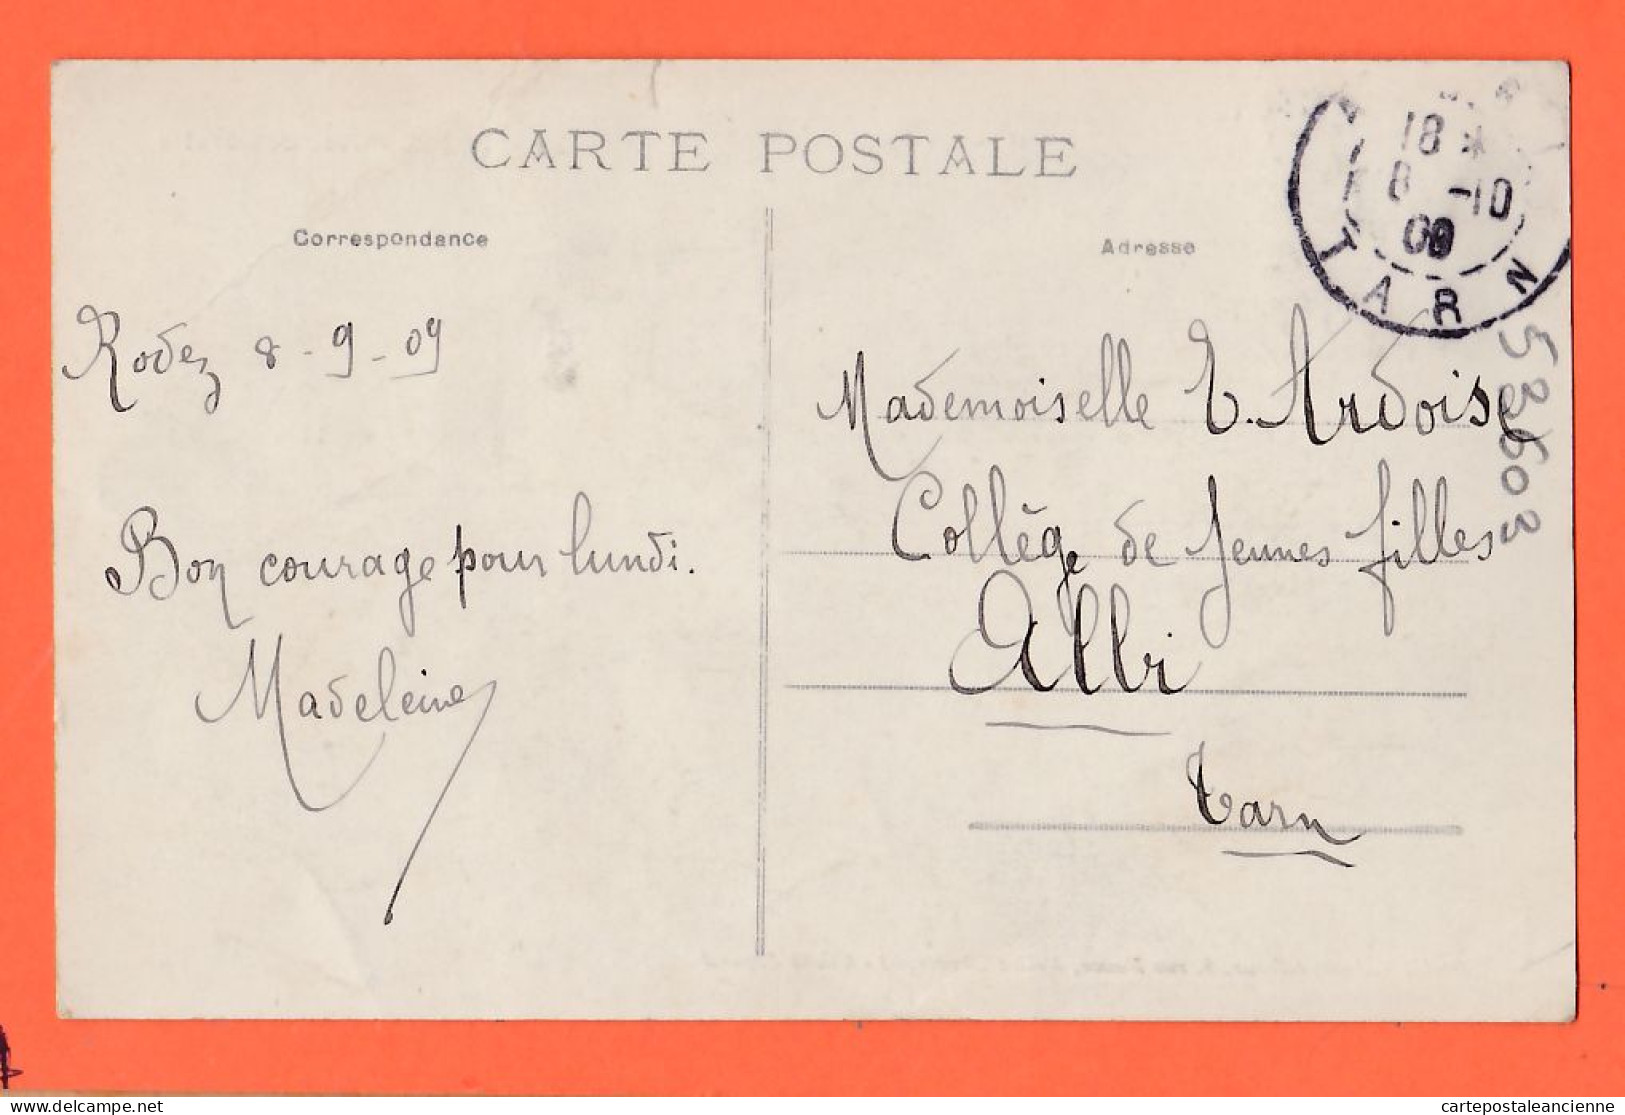 CARTE POSTALE
Correspondance
Rodez 8-9-09
Bon courage pour lundi.
Madeleine
Adresse
18 *
8 -10
09
TARN
Mademoiselle E. Ardoise
Collège de Jeunes filles
Albi
Tarn
cartepostaleancienne
delcampe.net